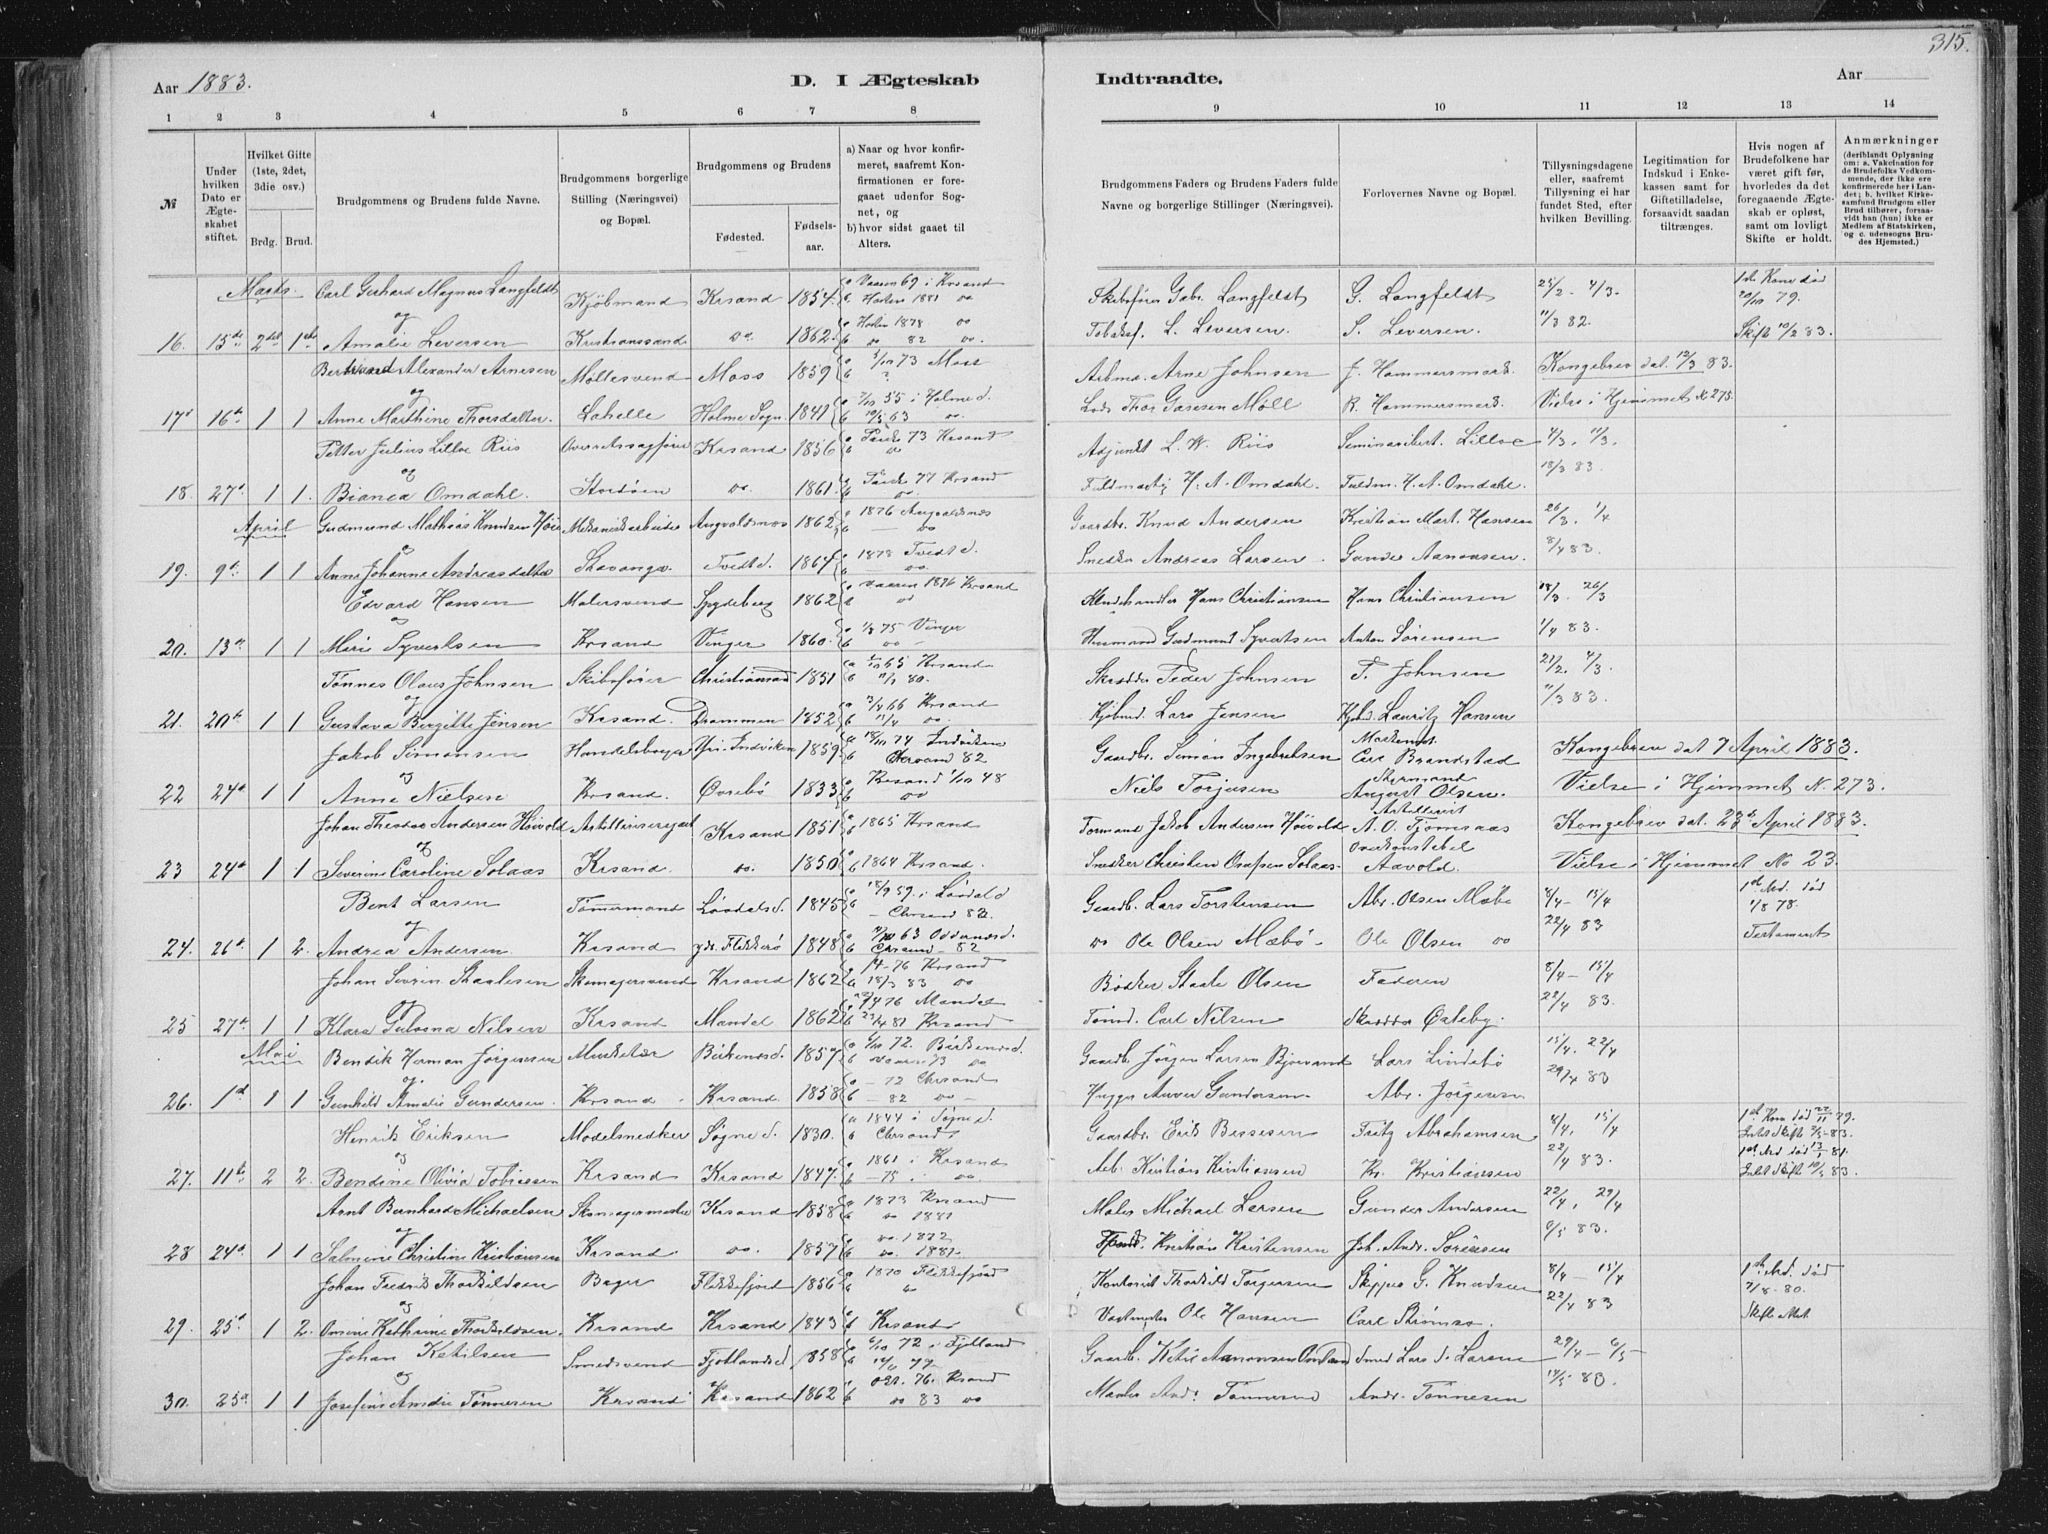 315.
Aar 1883. D. I Ægteskab Indtraadte. Aar
1 2 3 4 5 6 7 8 9 10 11 12 13 14
№
Under hvilken Dato er Ægteskabet stiftet.
Hvilket Gifte (1ste, 2det, 3die osv.)
Brdg. Brud.
Brudgommens og Brudens fulde Navne.
Brudgommens borgerlige Stilling (Næringsvei) og Bopæl.
Brudgommens og Brudens
Fødested. Fødselsaar.
a) Naar og hvor konfirmeret, saafremt Konfirmationen er foregaaet udenfor Sognet, og
b) hvor sidst gaaet til Alters.
Brudgommens Faders og Brudens Faders fulde Navne og borgerlige Stillinger (Næringsvei).
Forlovernes Navne og Bopæl.
Tillysningsdagene eller, saafremt Tillysning ei har fundet Sted, efter hvilken Bevilling.
Legitimation for Indskud i Enkekassen samt for Giftetilladelse, forsaavidt saadan tiltrænges.
Hvis nogen af Brudefolkene har været gift før, hvorledes da det foregaaende Ægteskab er opløst, samt om lovligt Skifte er holdt.
Anmærkninger
(deriblandt Oplysning om: a. Vakcination for de Brudefolks Vedkommende, der ikke ere konfirmerede her i Landet; b. hvilket Kirkesamfund Brudgom eller Brud tilhører, forsaavidt han (hun) ikke er Medlem af Statskirken, og c. udensogns Brudes Hjemsted.)
Marts. Carl Gerhard Magnus Langfeldt Kjøbmand Krsand 1854 a Vaaren 69 i Krsand b Høsten 1881 do Skibsfører Gabr. Langfeldt G. Langfeldt 25/2 - 4/3. 1ste Kone død 20/10 79.
og
16. 15de 2det 1ste Amalie Leversen Kristianssand do. 1862 a Høsten 1878 do b do 82 do. Tobaksf. L. Leversen. S. Leversen. 11/3 82. Skifte 10/2 83.
Bertrand Alexander Arnesen Møllesvend Moss 1859 a 5/10 73 Moss b ? Arbmd. Arne Johnsen J. Hammersmark. Kongebrev dat. 12/3 83.
og
17 16de 1 1 Anne Marthine Thorsdatter. Lahelle Holme Sogn 1841 a 7/10 55 i Holme d. b 10/5 63 do. Lods Thor Gasesen Møll R. Hammersmark. Vielse i Hjemmet № 275.
Petter Julius Lilloe Riis Overretssagfører Krsand 1856 a Paaske 73 Krsand b do Adjunkt L. W. Riis Seminaribest. Lilloe 4/3, 11/3.
og
18. 27de 1 1. Bianca Omdahl. Stordøen do. 1861 a Paaske 77 Krsand b do. Fuldmægtig H. A. Omdahl. Fuldm. H. A. Omdahl. 18/3 83.
April Gudmund Mathias Knudsen Høie Mekanisk arbeider Augvaldsnæs 1862 a 1876 Augvaldsnæs b — do Gaardbr. Knud Andersen Kristian Mart. Hansen 26/3. 1/4
og
19. 9de 1 1 Anne Johanne Andreasdatter Stavanger Tvedt d. 1864 a 1878 Tvedt d. b — do. Snedker Andreas Larsen Gunder Aanonsen. 8/4 83.
Edvard Hansen Malersvend Spydeberg 1862 a Vaaren 1876 Krsand b do Klædehandler Hans Christiansen Hans Christiansen 18/3. 26/3
og
20. 13de 1 1 Marie Syvertsen Krsand Vinger 1860. a 1/8 75 Vinger b do — Husmand Gudmund Syvertsen Anton Sørensen 1/4 83.
Tønnes Olaus Johnsen Skibsfører Christianssand 1851 a 1/10 65 Krsand b 11/1 80. Skrædder Peder Johnsen T. Johnsen 21/2. 4/3.
og
21. 20de 1 1 Gustava Birgitte Jensen Krsand. Drammen 1852 a 13/4 66 Krsand b 11/4 do. Kjøbmd. Lars Jensen Kjøbmd. Lauritz Hansen 11/3 83.
Jakob Simonsen Handelsborger Indviken 1859 a 18/10 74 Indviken b Chrsand 82 Gaardbr. Simon Ingebrektsen Carl Brandstad Kongebrev dat 7 April 1883.
og
22 24de 1 1 Anne Nielsen Krsand. Øvrebø 1833 a Krsand 1/10 48 b do Niels Torjusen Styrmand August Olsen. Vielse i Hjemmet N. 273.
Johan Theodor Andersen Høivold Artillerisergeant Krsand 1851 a 1865 Krsand b Formand Jakob Andersen Høivold A. O. Tjomsaas Kongebrev dat. 23de April 1883.
og
23 24de 1 1 Severine Caroline Solaas Krsand. do. 1850 a b 1864 Krsand. Snedker Christen Olafsen Solaas. Overkonstabel Aavold. Vielse i Hjemmet No 23.
Bent Larsen Tømmermand Løvdals d. 1845 a 18/9 59. i Løvdal d b — Chrsand 82. Gaardb. Lars Torstensen Abr. Olsen Mæbø 8/4 — 15/4 1ste Md. død 1/8 78.
og
24. 26de 1 2. Andrea Andersen Krsand ydr. Flekkerø 1848 a 63 Oddernæs d. b Chrsand 82 do Ole Olsen Mæbø — Ole Olsen do 22/4 83 Testament
Johan Severin Staalesen Skomagersvend Krsand 1862 a 14-76 Krsand b 18/3 83 do Bødker Staale Olsen Faderen 8/4 — 15/4
og
25 27de 1 1 Klara Gulovna Nilsen Krsand Mandal 1862 a 22/4 76 Mandal b 23/4 81 Krsand Tømd. Carl Nilsen Skrædder Østeby. 22/4 83.
Mai Bendik Herman Jørgensen Musketær Birkenæs d. 1857 a 6/10 72. Birkenæs d. b Vaaren 73 do Gaardb. Jørgen Larsen Bjorvand Lars Lindebø 15/4. 22/4
og
26. 1ste 1 1 Gunhild Amalie Gundersen. Krsand. Krsand. 1858 a — 72 Chrsand b — 82 do — Hugger Anver Gundersen Abr. Jørgensen 29/4 83
Henrik Eriksen Modelsnedker Søgne d. 1830. a 1844 i Søgne d. b Chrsand Gaardbr. Erik Bessesen Fritz Abrahamsen 8/4, 15/4 1ste Kone død 22/11 79. Intet Skifte 3/5 - 83.
og
27. 11te 2 2. Bendine Olivia Tobiesen Krsand Krsand 1847. a 1861 i Krsand b — 75. do. Arb. Kristian Kristiansen Kr. Kristiansen 22/4 83. 1ste Md død 13/1 81. Intet Skifte 10/5 83.
Arnt Bernhard Michaelsen Skomagermester Krsand 1858 a 1873 Krsand b do 1881 Maler Michael Larsen Gunder Andersen 22/4, 29/4
og
28 24de 1 1 Salmine Christine Kristiansen Krsand do. 1857 a do. 1872 b do. 1881. Kristian Kristensen Joh. Andr. Sørensen 6/5 83.
Johan Fredrik Thorkildsen Bager Flekkefjord 1856 a 1870 Flekkefjord b do Kontorist Thorkild Torgersen Skipper G. Knudsen 8/4 — 15/4 1ste Md. død 7/8-80.
og
29. 25de 1 2. Omine Kathrine Thorkildsen. Krsand Krsand 1843 a b Krsand Ole Hansen Carl Strømsø. 22/4 83 Skifte
Johan Ketilsen Smedsvend Fjotlands d. 1858 a 6/10 72 i Fjotland b 77 Gaardb. Ketil Aanonsen Omland Smed Lars S. Larsen 29/4 — 6/5
og
30. 25de 1 1 Josefine Amalie Tønnesen Krsand Krsand 1862 a Okt. 76. Krsand b do 83 do Maaler Andr. Tønnesen Andr. Tønnesen 14/5 83.